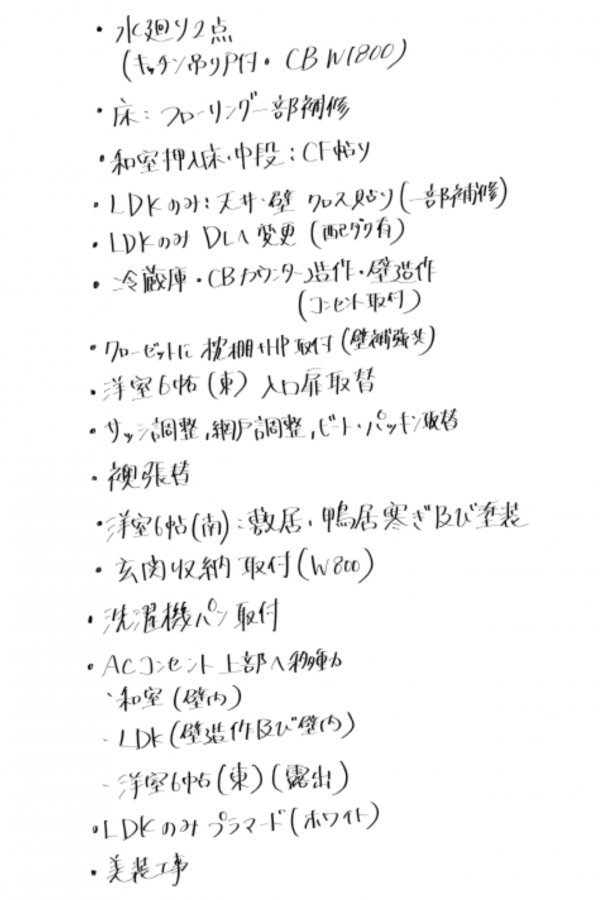 ・水廻り2点
(キッチン吊りP付・CB W1800)
・床:フローリング一部補修
・和室押入床・中段:CF貼り
・LDKのみ:天井・壁 クロス貼り(一部補修)
・LDKのみ DLへ変更(配ダク有)
・冷蔵庫・CBカウンター造作・壁造作
(コンセント取付)
・クローゼットに枕棚+HP取付(壁補強共)
・洋室6帖(東)入口扉取替
・サッシ調整,網戸調整,ビート・パッキン取替
・襖張替
・洋室6帖(南):敷居・鴨居塞ぎ及び塗装
・玄関収納取付(W800)
・洗濯機パン取付
・ACコンセント上部へ移動
・和室(壁内)
・LDK(壁造作及び壁内)
・洋室6帖(東)(露出)
・LDKのみプラマード(ホワイト)
・美装工事